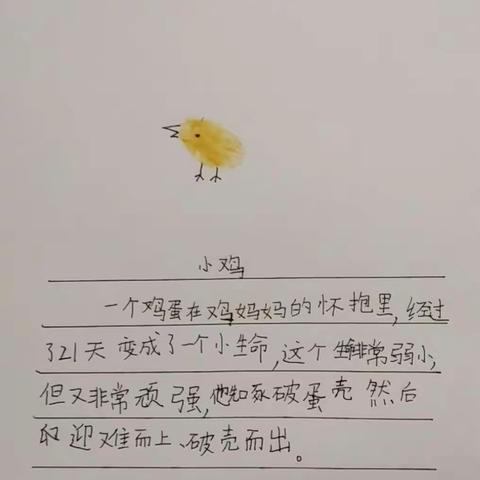 小鸡
一个鸡蛋在鸡妈妈的怀抱里,经过
了21天变成了一个小生命,这个非常弱小,
但又非常顽强,他知破蛋壳 然后
迎难而上、破壳而出。